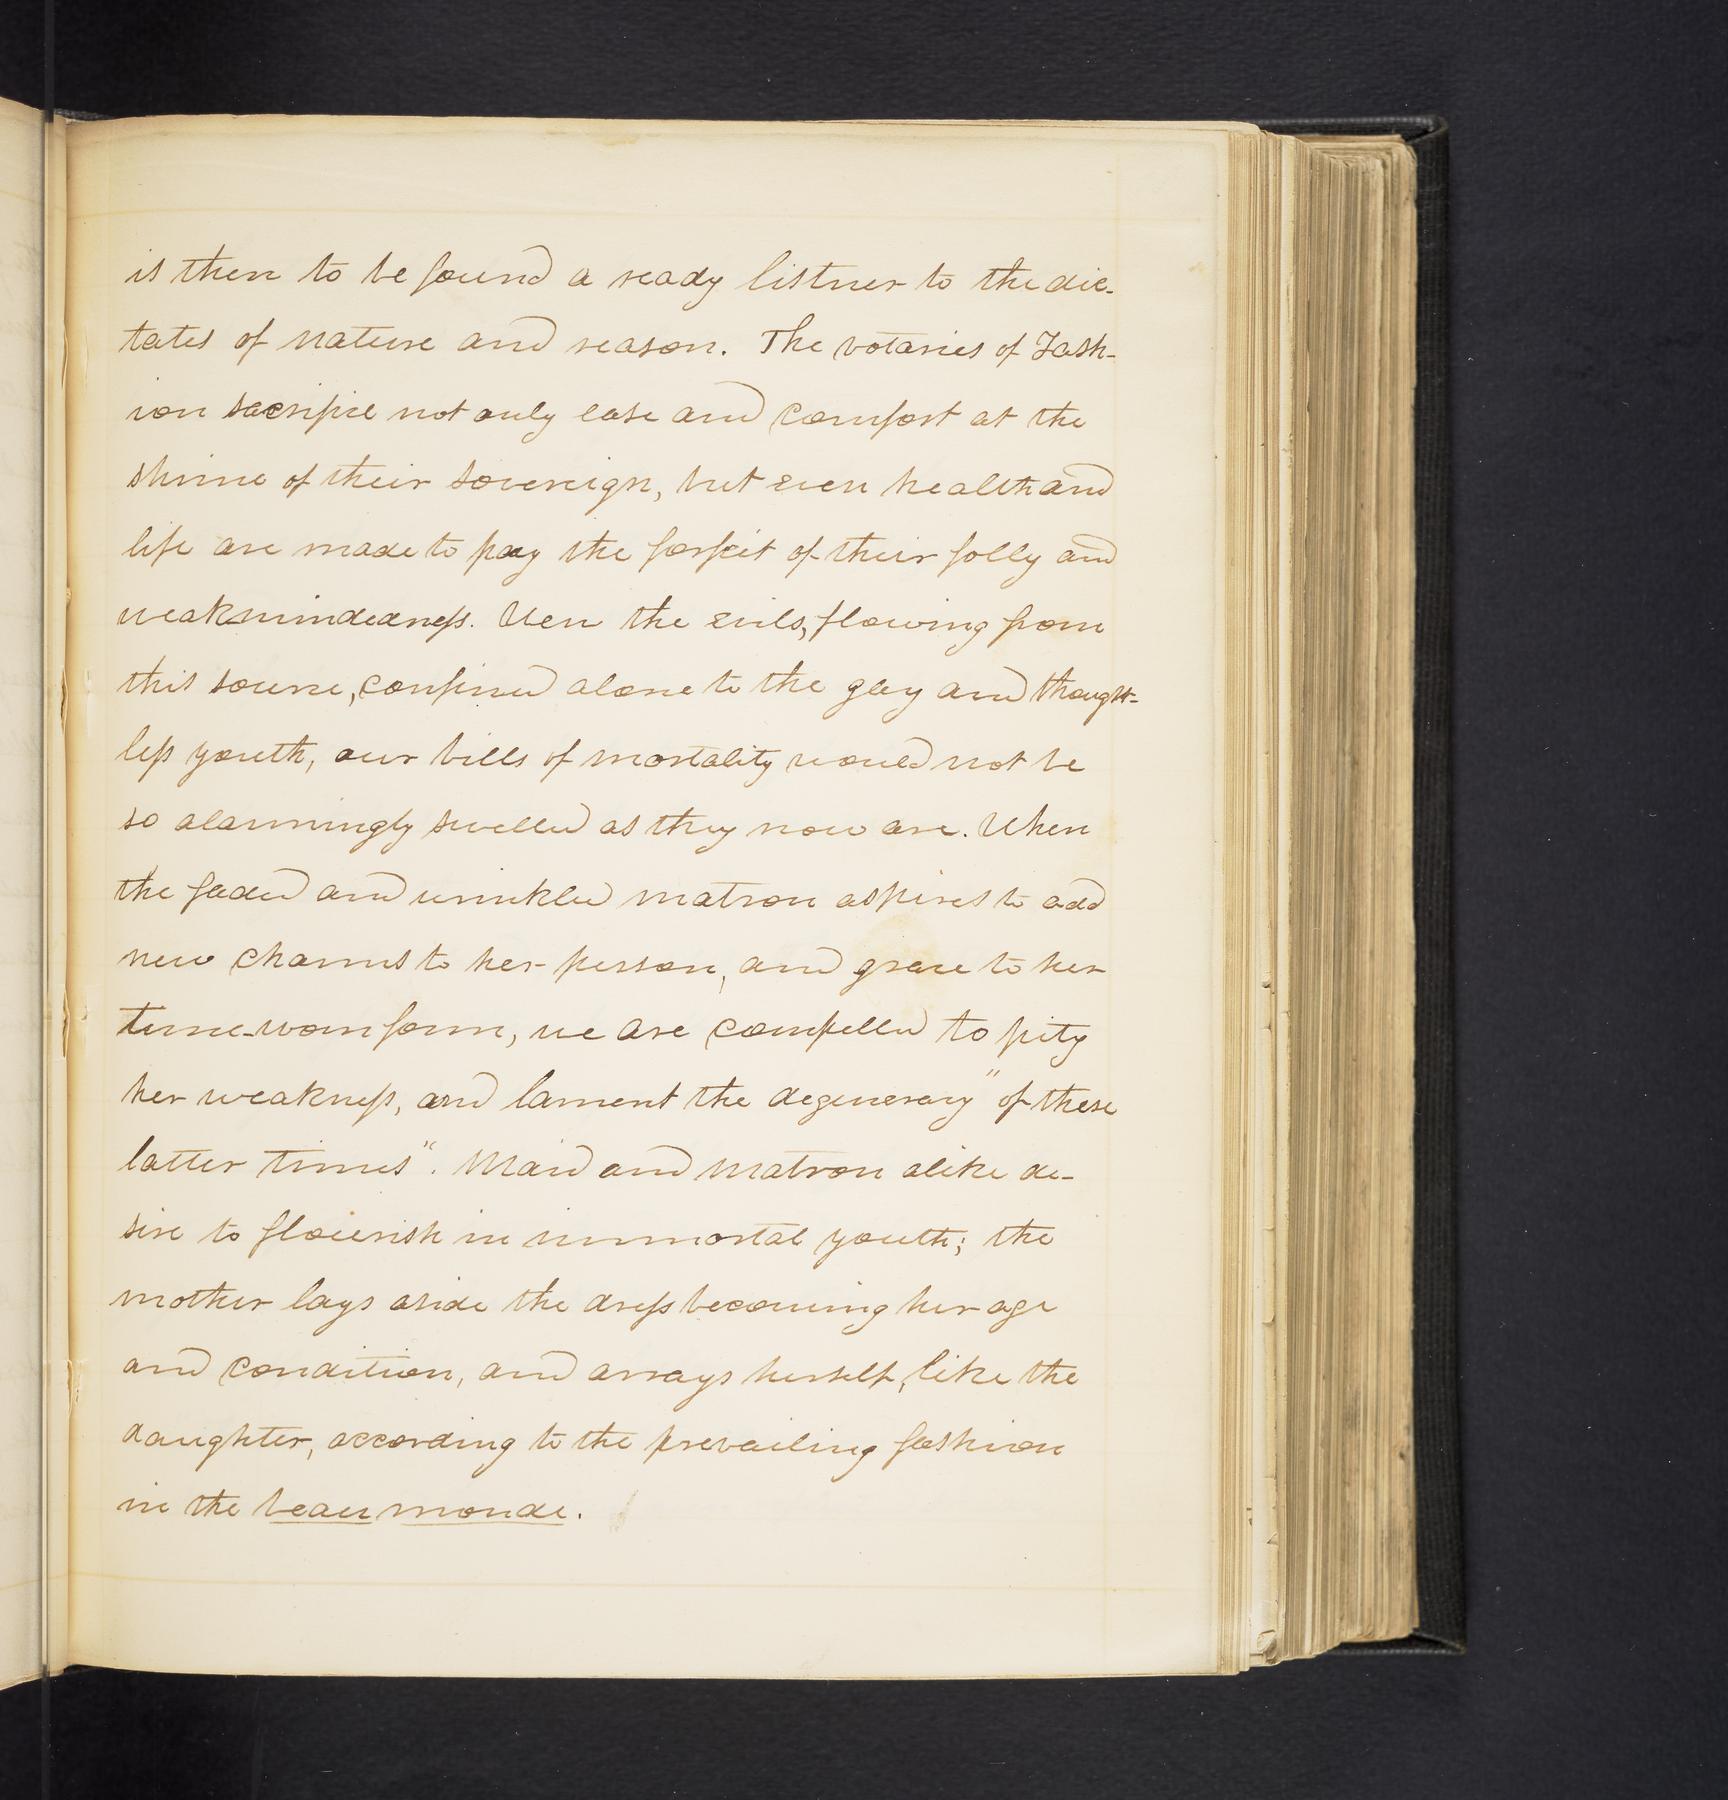 is then to be found a ready listner to the dic-
tates of nature and reason. The votaries of Fash-
ion sacrifice not only ease and comfort at the
shrine of their sovereign, but even health and
life are made to pay the forfeit of their folly and
weakmindedness. Were the evils, flowing from
this source, confined alone to the gay and thought-
less youth, our bills of mortality would not be
so alarmingly swelled as they now are. When
the faded and wrinkled matron aspires to add
new charms to her person, and grace to her
time-worn form, we are compelled to pity
her weakness, and lament the degeneracy "of these
latter times". Maid and matron alike de-
sire to flourish in immortal youth; the
mother lays aside the dress becoming her age
and condition, and arrays herself, like the
daughter, according to the prevailing fashion
in the beau monde.